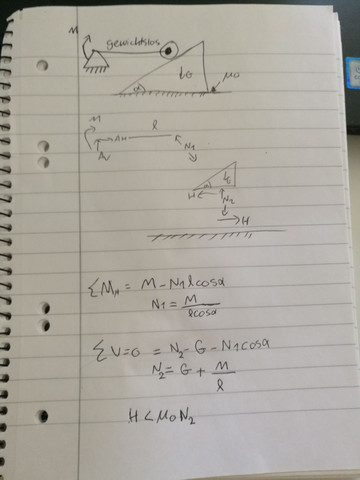 M
gewichtslos
α
G
μ0
M
l
AH
Av
N1
α
G
H
N2
H
ΣMA = M - N1lcosα
N1 = M/lcosα
ΣV=0 = N2-G-N1cosα
N2 = G + M/l
H < μ0N2